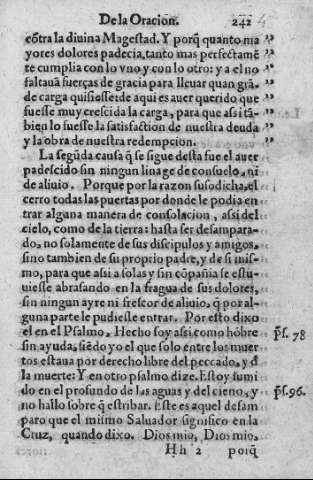 De la Oracion. 242
cõtra la diuina Magestad. Y porq̃ quanto ma
yores dolores padecia, tanto mas perfectamẽ
te cumplia con lo vno y con lo otro: y a el no
faltauã fuerças de gracia para lleuar quan grã-
de carga quisiesse: de aqui es auer querido que
fuesse muy crescida la carga, para que assi tã-
bien lo fuesse la satisfaction de nuestra deuda
y la obra de nuestra redempcion.
La segũda causa q̃ se sigue desta fue el auer
padescido sin ningun linage de consuelo, ni
de aliuio. Porque por la razon susodicha, el
cerro todas las puertas por donde le podia en
trar alguna manera de consolacion, assi del
cielo, como de la tierra: hasta ser desampara-
do, no solamente de sus discipulos y amigos,
sino tambien de su proprio padre, y de si mis-
mo, para que assi a solas y sin cõpañia se estu-
uiesse abrasando en la fragua de sus dolores,
sin ningun ayre ni frescor de aliuio, q̃ por al-
guna parte le pudiesse entrar. Por esto dixo
el en el Psalmo. Hecho soy assi como hõbre
sin ayuda, siẽdo yo el que solo entre los muer
tos estaua por derecho libre del peccado, y d̃
la muerte: Y en otro psalmo dize. Estoy sumi
do en el profundo de las aguas y del cieno, y
no hallo sobre q̃ estribar. Este es aquel desam
paro que el mismo Saluador significo en la
Cruz, quando dixo. Dios mio, Dios mio,
H h 2 porq̃
p̃s. 78
p̃s. 96.